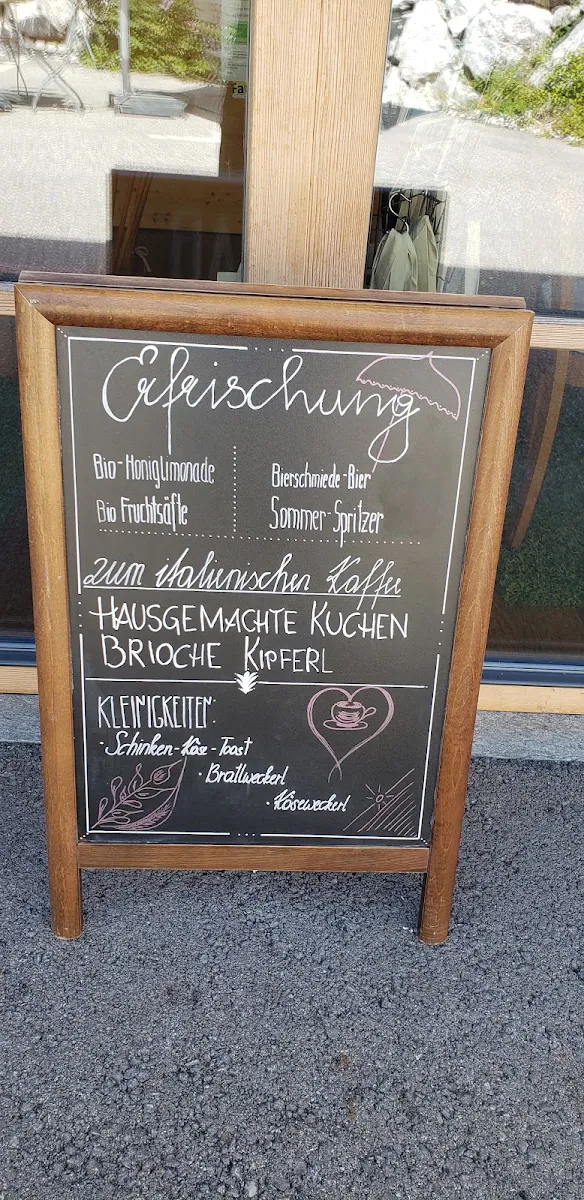 Erfrischung
Bio-Honiglimonade
Bio Fruchtsäfte
Bierschmiede-Bier
Sommer-Spritzer
zum italienischen Kaffee
HAUSGEMACHTE KUCHEN
BRIOCHE KIPFERL
KLEINIGKEITEN:
· Schinken-Käse-Toast
· Bratlweckerl
· Käseweckerl